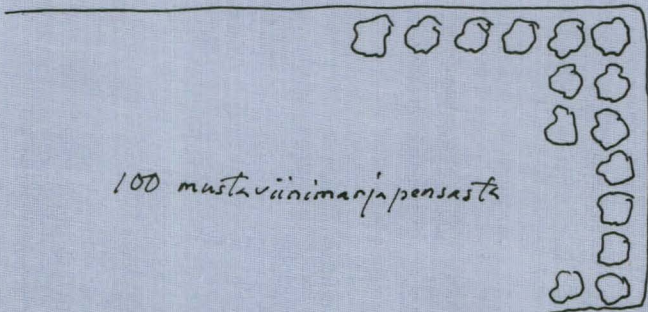 100 mustaviinimarjapensasta